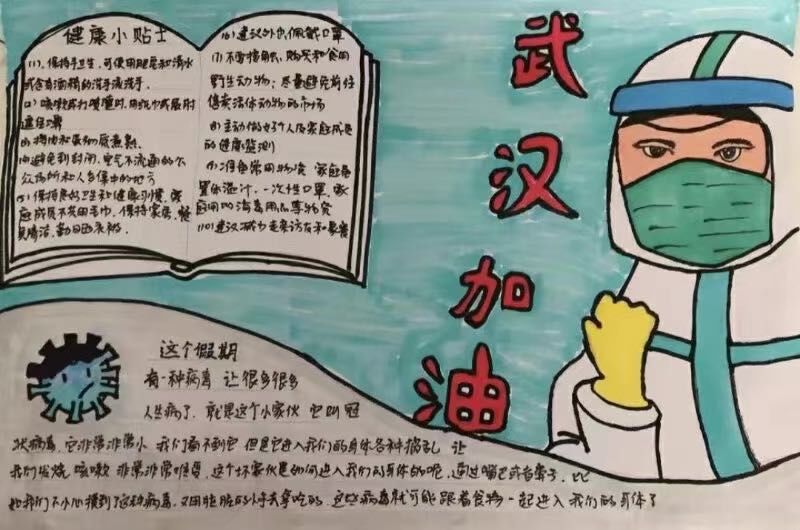 健康小贴士
(1)、保持手卫生,可使用肥皂和清水
或含有酒精的洗手液洗手
(2)咳嗽或打喷嚏时,用纸巾或屈肘
遮住口鼻
(3)将肉和蛋彻底煮熟、
(4)避免到封闭、空气不流通的公
众场所和人多集中的地方
(5)保持良好卫生和健康习惯,家
庭成员不共用毛巾,保持家居、餐
具清洁,勤晒衣被。
(6)建议外出佩戴口罩
(7)不要接触、购买和食用
野生动物;尽量避免前往
售卖活体动物的市场
(8)主动做好个人及家庭成员
的健康监测
(9)准备常用物资 家庭备
置体温计,一次性口罩,家
庭用的消毒用品等物资
(10)建议减少走亲访友和聚餐
武汉加油
这个假期
有一种病毒 让很多很多
人生病了,就是这个小家伙 它叫冠
状病毒,它非常非常小 我们看不到它 但是它进入我们的身体各种捣乱 让
我们发烧 咳嗽 非常非常难受,这个坏家伙是如何进入我们的身体的呢,通过嘴巴或者鼻子,比
如我们不小心摸到了这种病毒,又用脏脏的小手去拿吃的,这些病毒就可能跟着食物一起进入我们的身体了